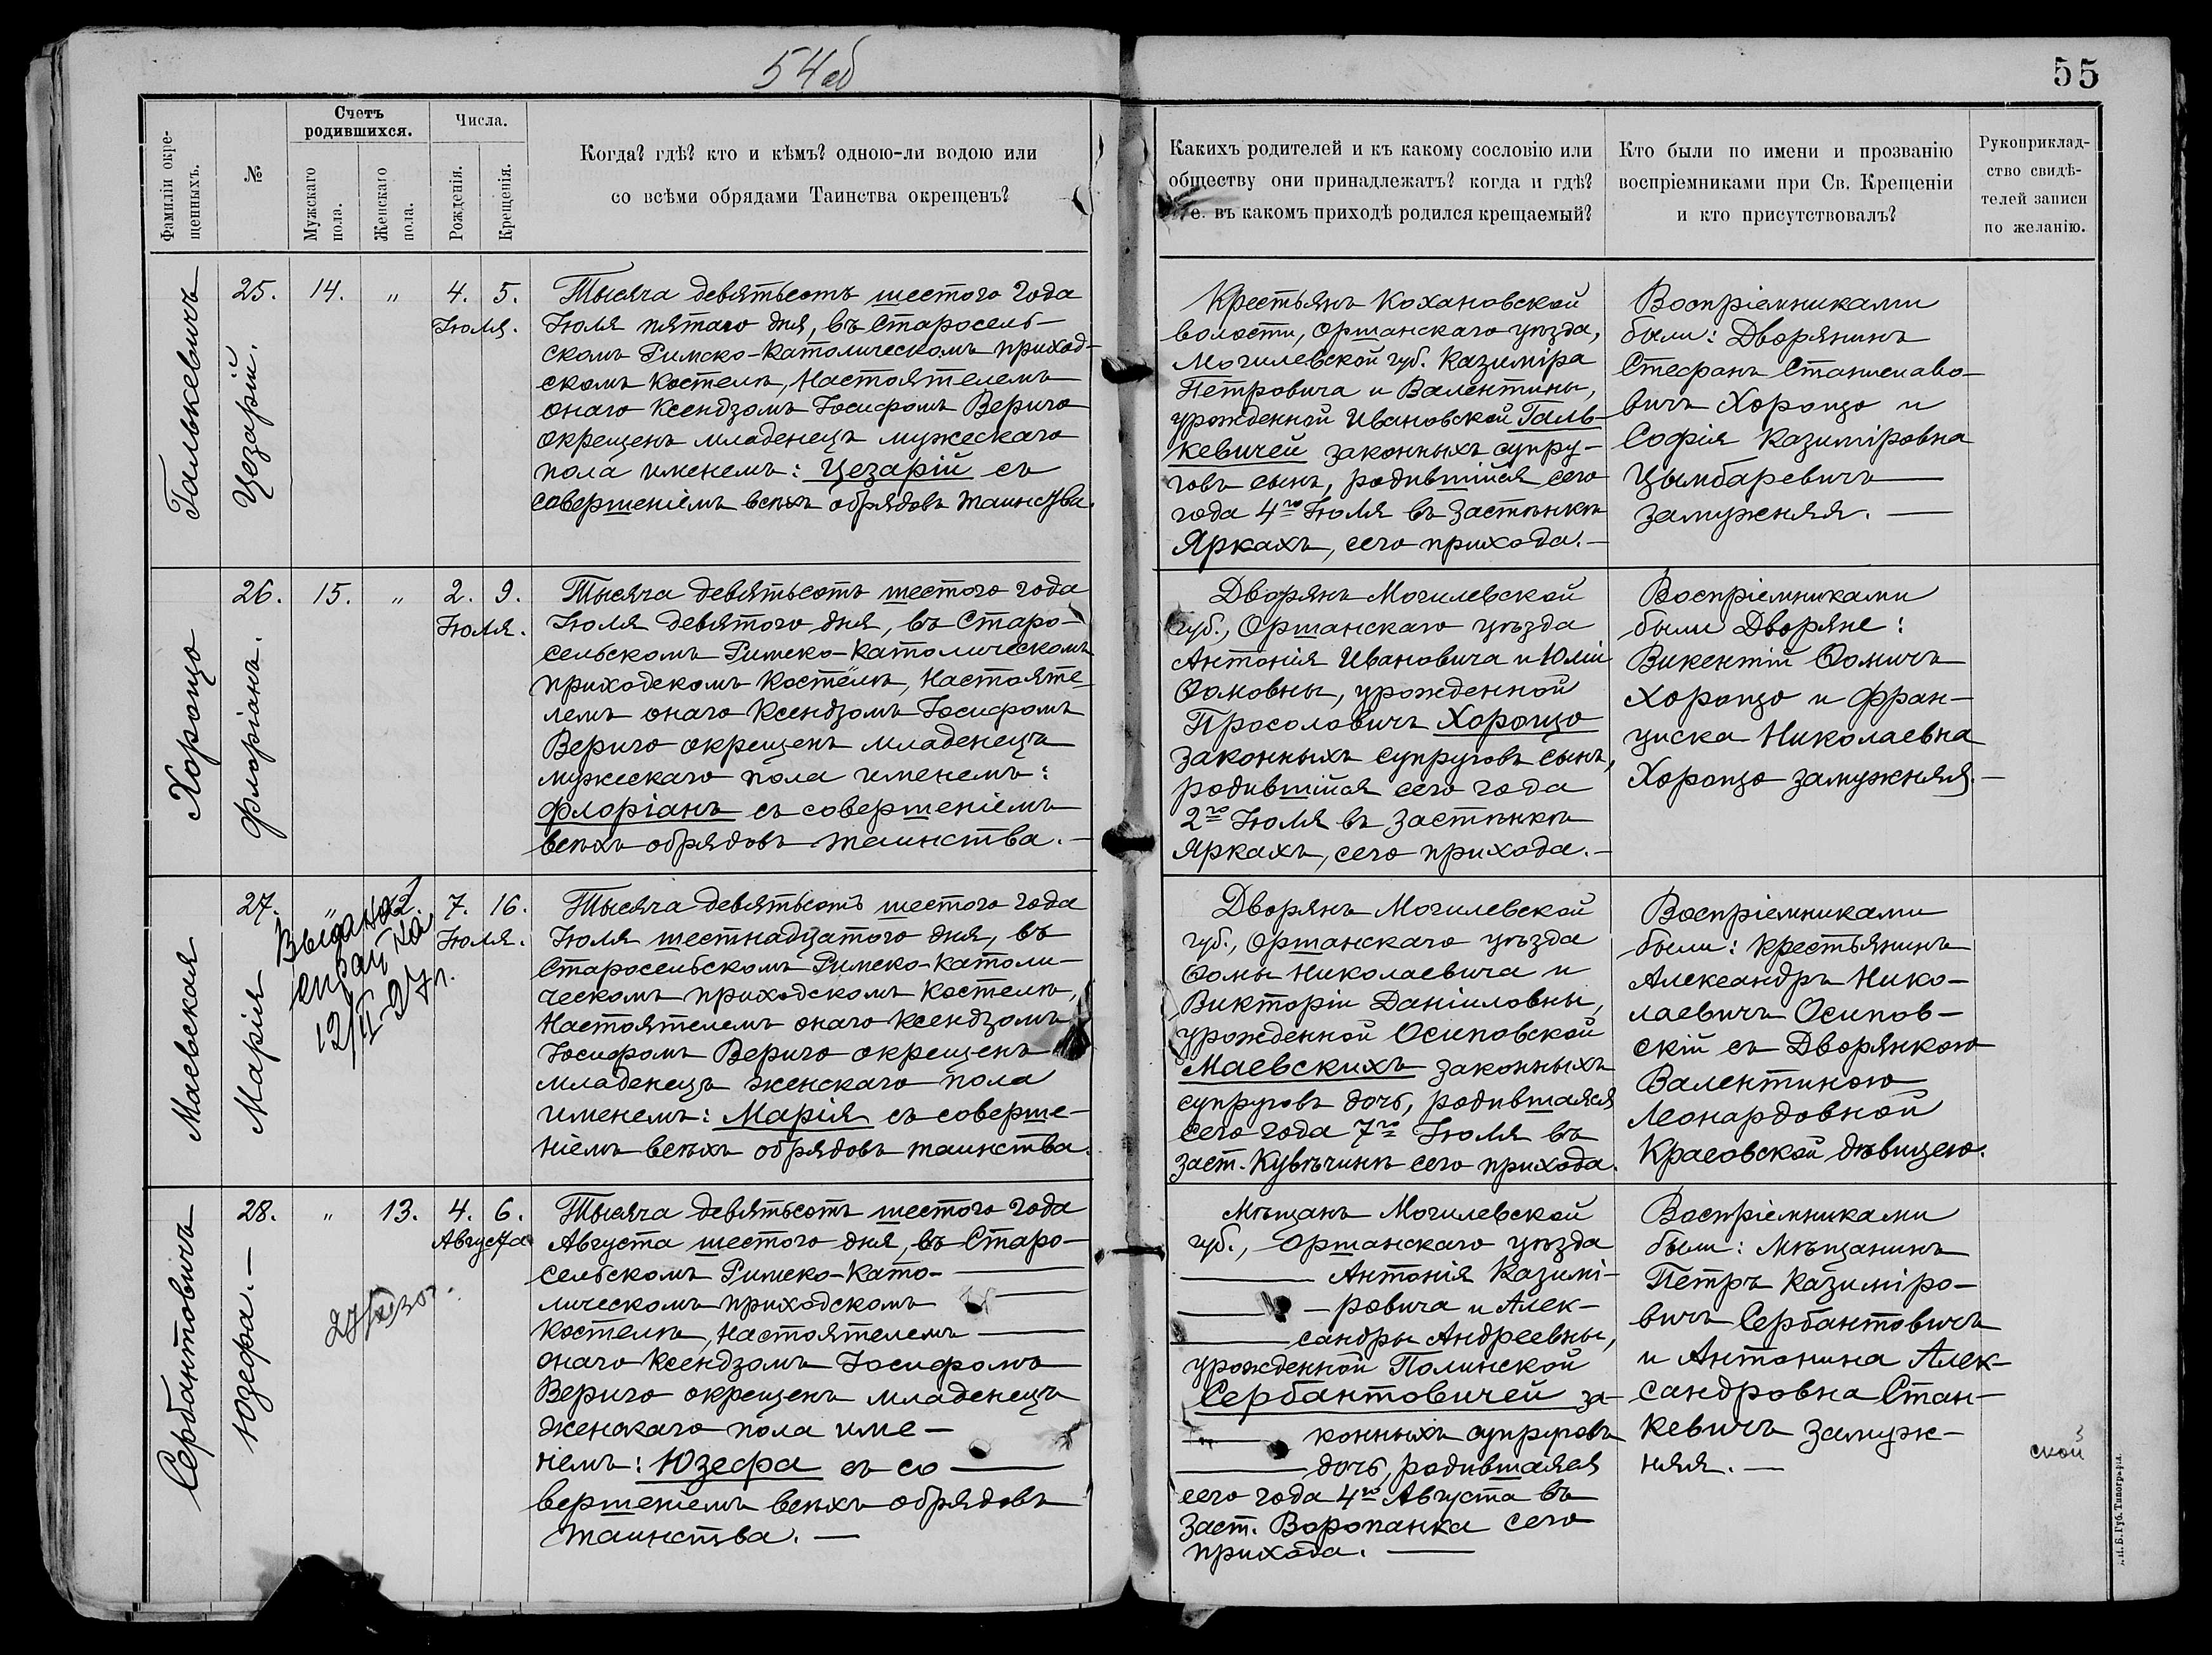 54об
55
Фамиліи окре-
щенныхъ.
№
Счетъ
родившихся.
Мужскаго
пола.
Женскаго
пола.
Числа.
Рожденія.
Крещенія.
Когда? гдѣ? кто и кѣмъ? одною-ли водою или
со всѣми обрядами Таинства окрещенъ?
Какихъ родителей и къ какому сословію или
обществу они принадлежатъ? когда и гдѣ?
т. е. въ какомъ приходѣ родился крещаемый?
Кто были по имени и прозванію
воспріемниками при Св. Крещеніи
и кто присутствовалъ?
Рукоприклад-
ство свидѣ-
телей записи
по желанію.
Галькевичъ
25.
Цезарій.
14.
"
4. 5.
Іюля.
Тысяча девятьсотъ шестого года
Іюля пятаго дня, въ Старосель-
скомъ Римско-Католическомъ приход-
скомъ Костелѣ, Настоятелемъ
онаго Ксендзомъ Іосифомъ Верыго
окрещенъ младенецъ мужескаго
пола именемъ: Цезарій съ
совершеніемъ всѣхъ обрядовъ таинства.
Крестьянъ Кохановской
волости, Оршанскаго уѣзда,
Могилевской губ. Казиміра
Петровича и Валентины,
урожденной Ивановской Галь-
кевичей законныхъ супру-
говъ сынъ, родившійся сего
года 4го Іюля въ застѣнкѣ
Яркахъ, сего прихода.—
Воспріемниками
были: Дворянинъ
Стефанъ Станиславо-
вичъ Хоронцо и
Софія Казиміровна
Цымбаревичъ —
замужняя. —
Хоронцо
26.
Флоріанъ.
15.
"
2. 9.
Іюля.
Тысяча девятьсотъ шестого года
Іюля девятого дня, въ Старо-
сельскомъ Римско-Католическомъ
приходскомъ Костелѣ, Настояте-
лемъ онаго Ксендзомъ Іосифомъ
Верыго окрещенъ младенецъ
мужескаго пола именемъ:
Флоріанъ съ совершеніемъ
всѣхъ обрядовъ таинства.—
Дворянъ Могилевской
губ., Оршанскаго уѣзда
Антонія Ивановича и Юліи
Ѳомовны, урожденной
Просоловичъ Хоронцо
законныхъ супруговъ сынъ,
родившійся сего года
2го Іюля въ застѣнкѣ
Яркахъ, сего прихода.—
Воспріемниками
были Дворяне:
Викентій Ѳомичъ
Хоронцо и Фран-
циска Николаевна
Хоронцо замужняя.—
Маевская
27.
Марія
"
12.
Выдана
12/II-27 г.
7. 16.
Іюля.
Тысяча девятьсотъ шестого года
Іюля шестнадцатого дня, въ
Старосельскомъ Римско-Католи-
ческомъ приходскомъ Костелѣ,
Настоятелемъ онаго Ксендзомъ
Іосифомъ Верыго окрещенъ
младенецъ женскаго пола
именемъ: Марія съ соверше-
ніемъ всѣхъ обрядовъ таинства.
Дворянъ Могилевской
губ., Оршанскаго уѣзда
Ѳомы Николаевича и
Викторіи Даніиловны,
урожденной Осиповской
Маевскихъ законныхъ
супруговъ дочь, родившаяся
сего года 7го Іюля въ
заст. Кувѣчинѣ сего прихода.
Воспріемниками
были: Крестьянинъ
Александръ Нико-
лаевичъ Осипов-
скій съ Дворянкою
Валентиною
Леонардовной
Красовской дѣвицею.
Сербантовичъ
28.
Юзефа.—
"
13.
4. 6.
Августа
Тысяча девятьсотъ шестого года
Августа шестого дня, въ Старо-
сельскомъ Римско-Като-
лическомъ приходскомъ
Костелѣ, Настоятелемъ
онаго Ксендзомъ Іосифомъ
Верыго окрещенъ младенецъ
женскаго пола име-
немъ: Юзефа съ со-
вершеніемъ всѣхъ обрядовъ
таинства.—
Мѣщанъ Могилевской
губ., Оршанскаго уѣзда
Антонія Казимі-
ровича и Алек-
сандры Андреевны,
урожденной Полинской
Сербантовичей за-
конныхъ супруговъ
дочь, родившаяся
сего года 4го Августа въ
заст. Воропанка сего
прихода. —
Воспріемниками
были: Мѣщанинъ
Петръ Казиміро-
вичъ Сербантовичъ
и Антонина Алек-
сандровна Стан-
кевичъ замуж-
няя.—
ской
Губ. Типографія.